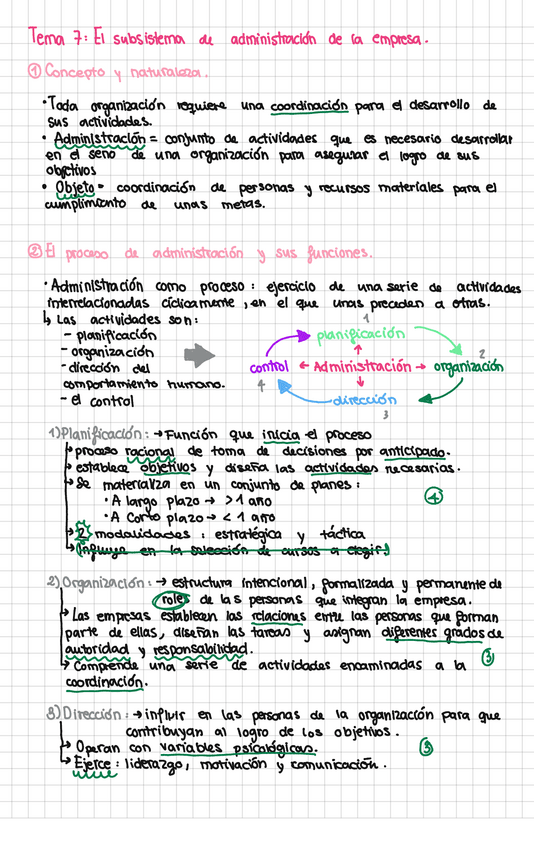 Tema 7: El subsistema de administración de la empresa.
① Concepto y naturaleza.
• Toda organización requiere una coordinación para el desarrollo de
sus actividades.
• Administración = conjunto de actividades que es necesario desarrollar
en el seno de una organización para asegurar el logro de sus
objetivos
• Objeto = coordinación de personas y recursos materiales para el
cumplimiento de unas metas.
② El proceso de administración y sus funciones.
• Administración como proceso: ejercicio de una serie de actividades
interrelacionadas cíclicamente, en el que unas preceden a otras.
↳ Las actividades son:
– planificación
– organización
– dirección del
comportamiento humano.
– el control
1
planificación
2
control ← Administración → organización
4
dirección
3
1) Planificación: → Función que inicia el proceso
→ proceso racional de toma de decisiones por anticipado.
→ establece objetivos y diseña las actividades necesarias.
→ Se materializa en un conjunto de planes:
• A largo plazo → > 1 año
④
• A corto plazo → < 1 año
→ 2 modalidades: estratégica y táctica
→ (Influye en la selección de cursos a elegir)
2) Organización: → estructura intencional, formalizada y permanente de
roles de las personas que integran la empresa.
→ Las empresas establecen las relaciones entre las personas que forman
parte de ellas, diseñan las tareas y asignan diferentes grados de
autoridad y responsabilidad.
③
→ Comprende una serie de actividades encaminadas a la
coordinación.
3) Dirección: → influir en las personas de la organización para que
contribuyan al logro de los objetivos.
→ Operan con variables psicológicas.
③
→ Ejerce: liderazgo, motivación y comunicación.